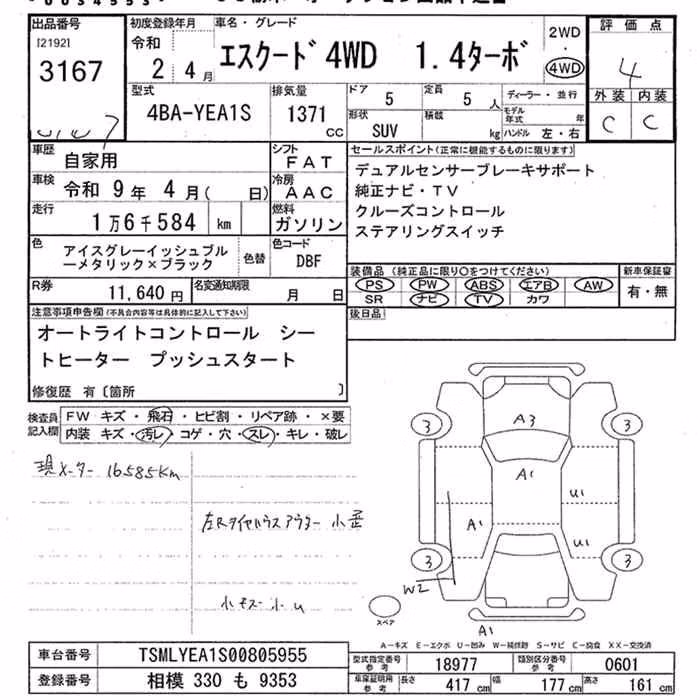 出品番号
[2192]
3167
初度登録年月
令和
2 4月
車名・グレード
エスクード4WD 1.4ターボ
2WD
・
4WD
評価点
4
外装 内装
C C
型式
4BA-YEA1S
排気量
1371
CC
ドア
5
定員
5 人
ディーラー・並行
形状
SUV
積載
kg
モデル年式 年
ハンドル 左・右
車歴
自家用
シフト
FAT
車検
令和 9年 4月( 日)
冷房
AAC
走行
1万6千584 km
燃料
ガソリン
色
アイスグレーイッシュブル
ーメタリック×ブラック
色替
色コード
DBF
R券
11,640 円
名変通知期限
月 日
セールスポイント(正常に機能するものに限ります)
デュアルセンサーブレーキサポート
純正ナビ・TV
クルーズコントロール
ステアリングスイッチ
装備品(純正品に限り○をつけてください)
PS PW ABS エアB AW
SR ナビ TV カワ
新車保証書
有・無
後日品
注意事項申告欄(不具合内容等は具体的に記入して下さい)
オートライトコントロール シー
トヒーター プッシュスタート
修復歴 有〔箇所 〕
検査員
記入欄
FW キズ・飛石・ヒビ割・リペア跡・×要
内装 キズ・汚レ・コゲ・穴・スレ・キレ・破レ
現メーター 16585Km
左Rタイヤハウスアウター 小歪
小キズ小U
3
3
3
3
A3
A1
A1
U1
U1
W2
A1
スペア
A-キズ E-エクボ U-凹み W-補修跡 S-サビ C-腐食 XX-交換済
車台番号
TSMLYEA1S00805955
登録番号
相模 330 も 9353
型式指定番号
参考
18977
類別区分番号
参考
0601
車庫証明用
参考
長さ
417 cm
幅
177 cm
高さ
161 cm